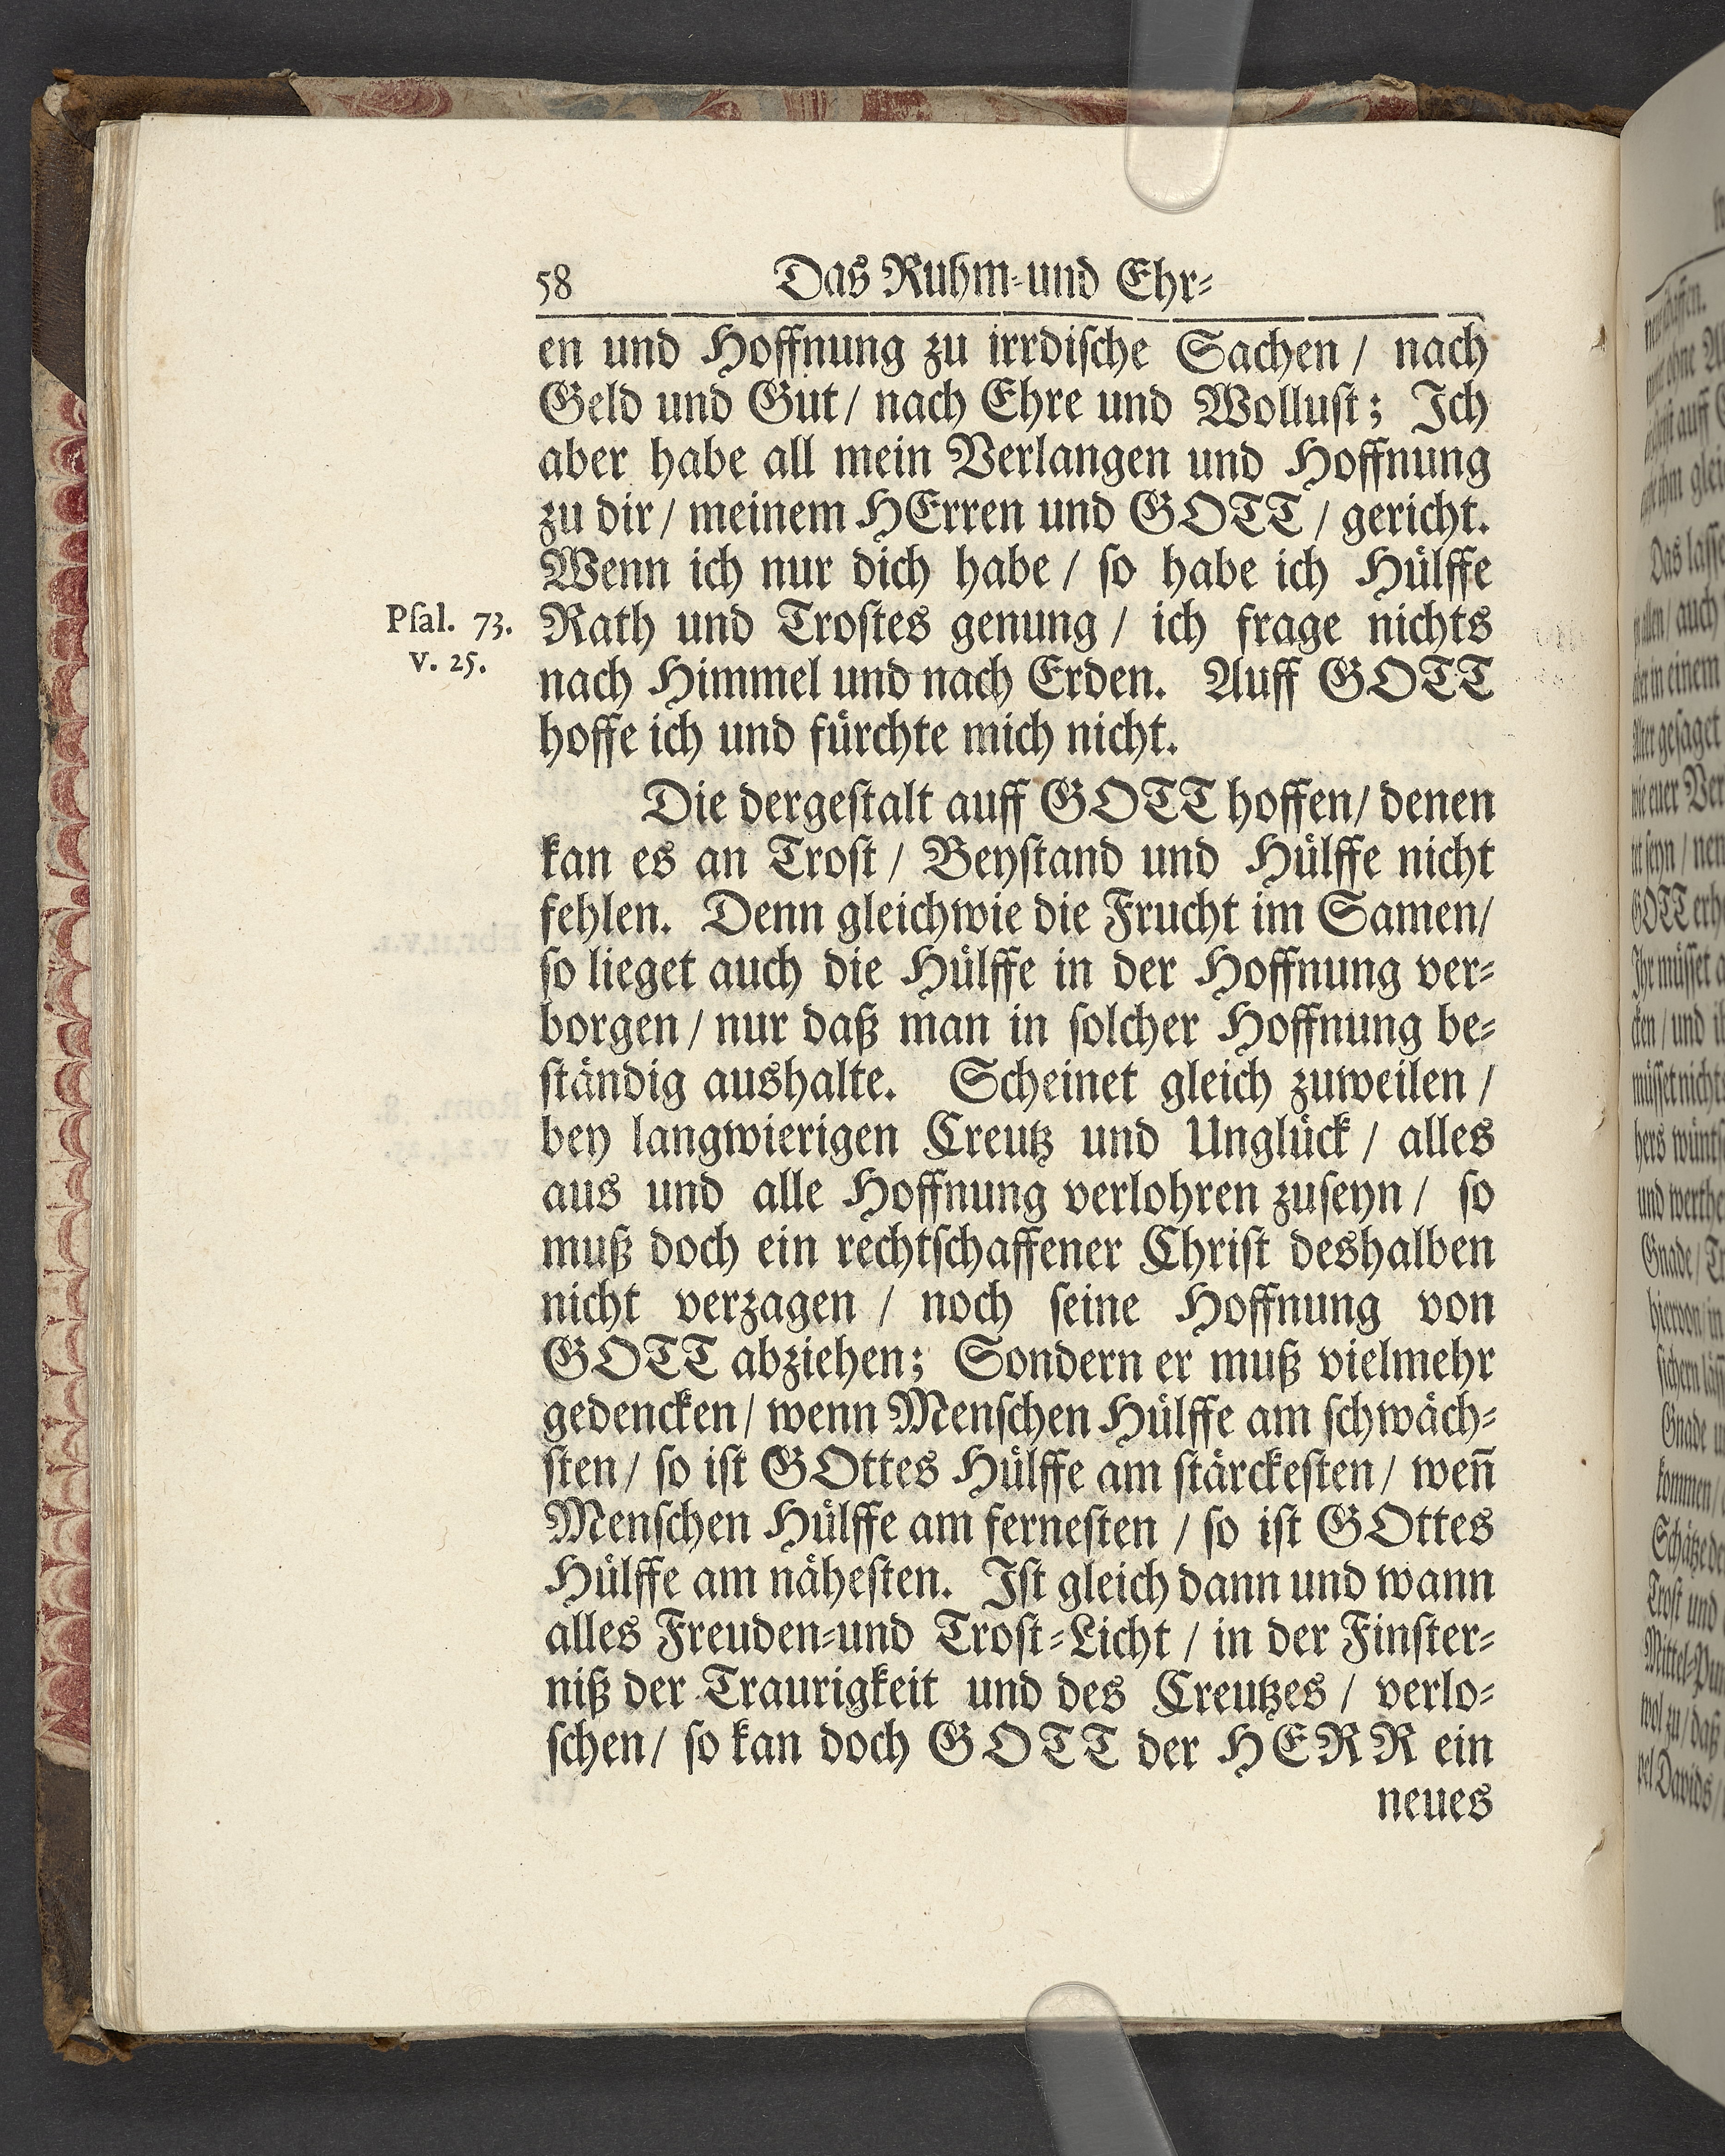 58 Das Ruhm-und Ehr-
en und Hoffnung zu irrdiſche Sachen / nach
Geld und Gut / nach Ehre und Wolluſt; Ich
aber habe all mein Verlangen und Hoffnung
zu dir / meinem HErren und GOTT / gericht.
Wenn ich nur dich habe / ſo habe ich Huͤlffe
Pſal. 73. Rath und Troſtes genung / ich frage nichts
v. 25. nach Himmel und nach Erden. Auff GOTT
hoffe ich und fuͤrchte mich nicht.
Die dergeſtalt auff GOTT hoffen / denen
kan es an Troſt / Beyſtand und Huͤlffe nicht
fehlen. Denn gleichwie die Frucht im Samen /
ſo lieget auch die Huͤlffe in der Hoffnung ver-
borgen / nur daß man in ſolcher Hoffnung be-
ſtaͤndig aushalte. Scheinet gleich zuweilen /
bey langwierigen Creutz und Ungluͤck / alles
aus und alle Hoffnung verlohren zuſeyn / ſo
muß doch ein rechtſchaffener Chriſt deshalben
nicht verzagen / noch ſeine Hoffnung von
GOTT abziehen; Sondern er muß vielmehr
gedencken / wenn Menſchen Huͤlffe am ſchwaͤch-
ſten / ſo iſt GOttes Huͤlffe am ſtaͤrckeſten / weñ
Menſchen Huͤlffe am ferneſten / ſo iſt GOttes
Huͤlffe am naͤheſten. Iſt gleich dann und wann
alles Freuden-und Troſt-Licht / in der Finſter-
niß der Traurigkeit und des Creutzes / verlo-
ſchen / ſo kan doch GOTT der HERR ein
neues